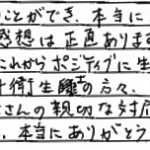 ことができ、本当に
感想は正直あります
これからポジティブに生
衛生
さんの親切な対応
、本当にありがとう